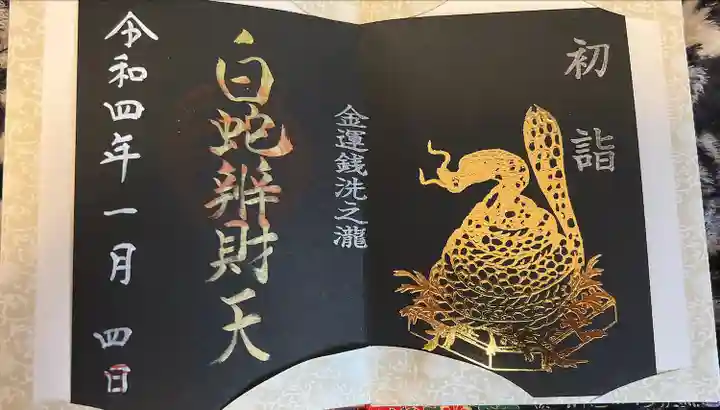 初詣
金運銭洗之瀧
白蛇辨財天
令和四年一月 四日